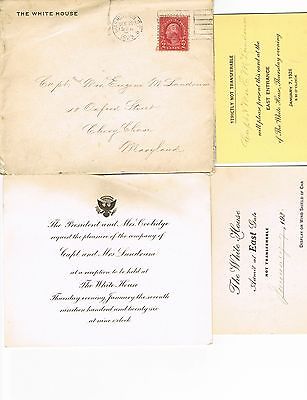 THE WHITE HOUSE
Capt & Mrs. Eugene M. Landrum
Oxford Street
Chevy Chase
Maryland
STRICTLY NOT TRANSFERABLE
will please present this card at the
EAST ENTRANCE
of The White House, Thursday evening
JANUARY 7, 1926
The President and Mrs. Coolidge
request the pleasure of the company of
Capt and Mrs Landrum
at a reception to be held at
The White House
Thursday evening, January the seventh
nineteen hundred and twenty-six
at nine o'clock
The White House
Admit at East Gate
NOT TRANSFERABLE
DISPLAY ON WIND SHIELD OF CAR